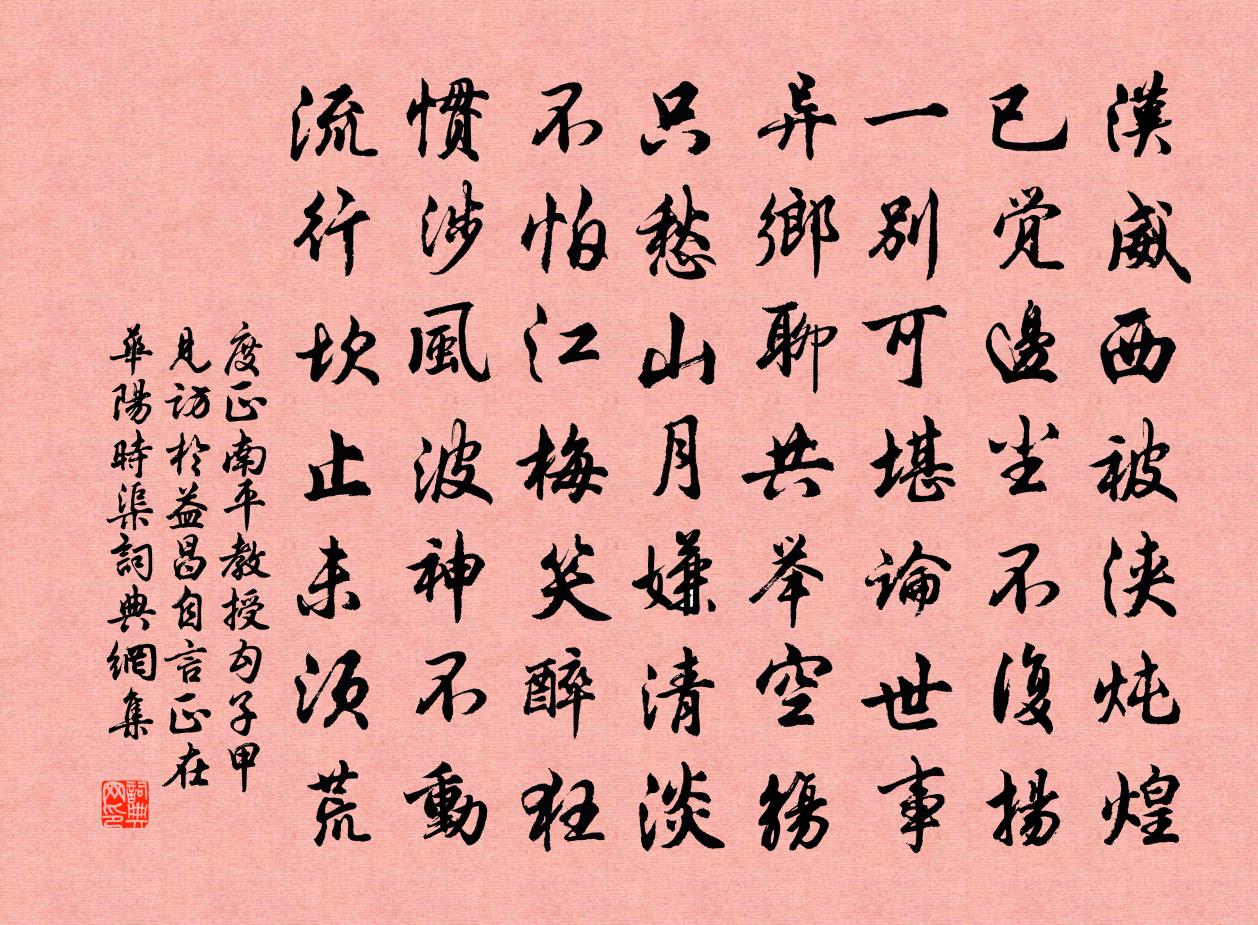 漢威西被浹炖煌
已觉邊尘不復揚
一别可堪論世事
异鄉聊共举空觞
只愁山月嫌清淡
不怕江梅笑醉狂
慣涉風波神不動
流行坎止未须荒
度正南平教授勾子甲
見訪於益昌自言正在
華陽時渠詞典網集
詞典
网印